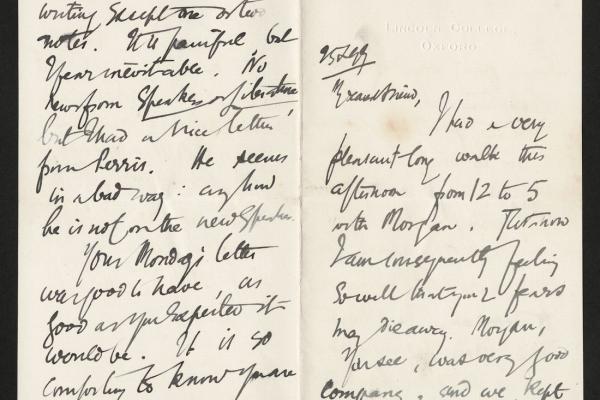 writing except one or two
notes. It is painful but
I fear inevitable. No
news from Speaker or Literature
but I had a nice letter
from Perris. He seems
in a bad way: anyhow
he is not on the new Speaker.
Your Monday's letter
was good to have, as
good as you expected it
would be. It is so
comforting to know you are
LINCOLN COLLEGE,
OXFORD.
My dearest friend,
I had a very
pleasant long walk this
afternoon from 12 to 5
with Morgan.
I am consequently feeling
So well that your fears
may die away. Morgan,
you see, was very good
company, and we kept